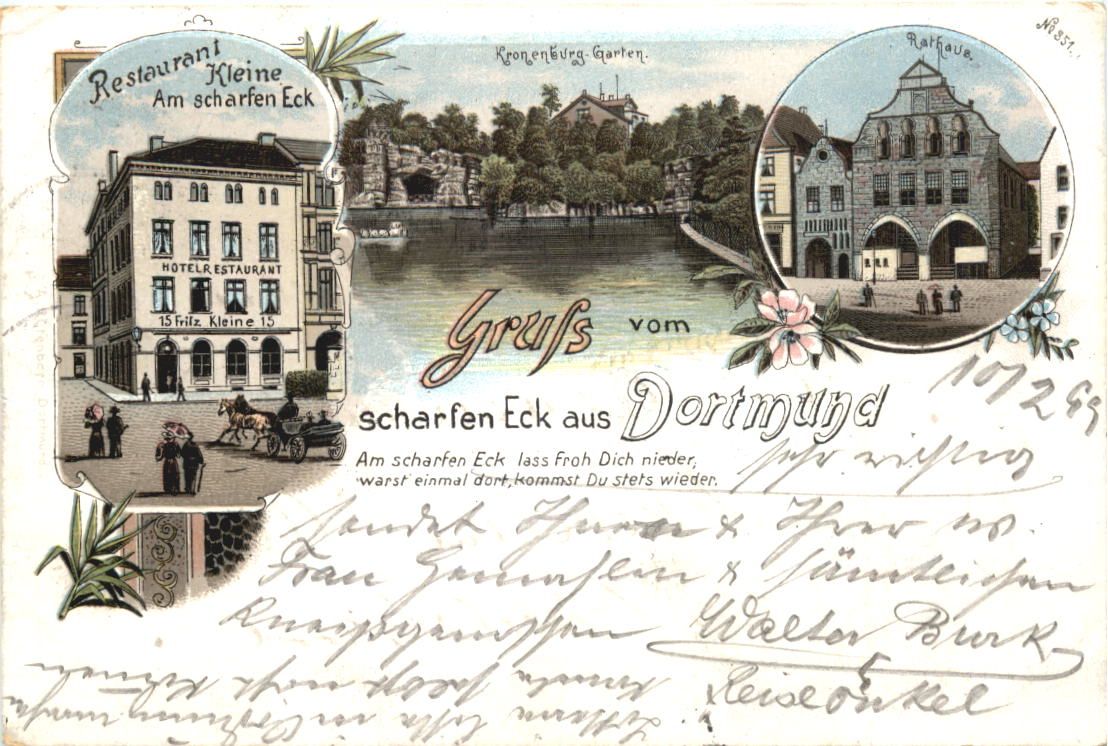 Restaurant
Kleine
Am scharfen Eck
HOTELRESTAURANT
15 Fritz Kleine 15
Kronenburg-Garten.
Rathaus.
No 351.
Gruss vom
scharfen Eck aus Dortmund
Am scharfen Eck lass froh Dich nieder,
warst einmal dort, kommst Du stets wieder.
10/2 99
sehr richtig
sendet Ihnen & Ihrer w.
Frau Gemahlin & sämtlichen
Kneipgenossen Walter Burk
Reiseonkel